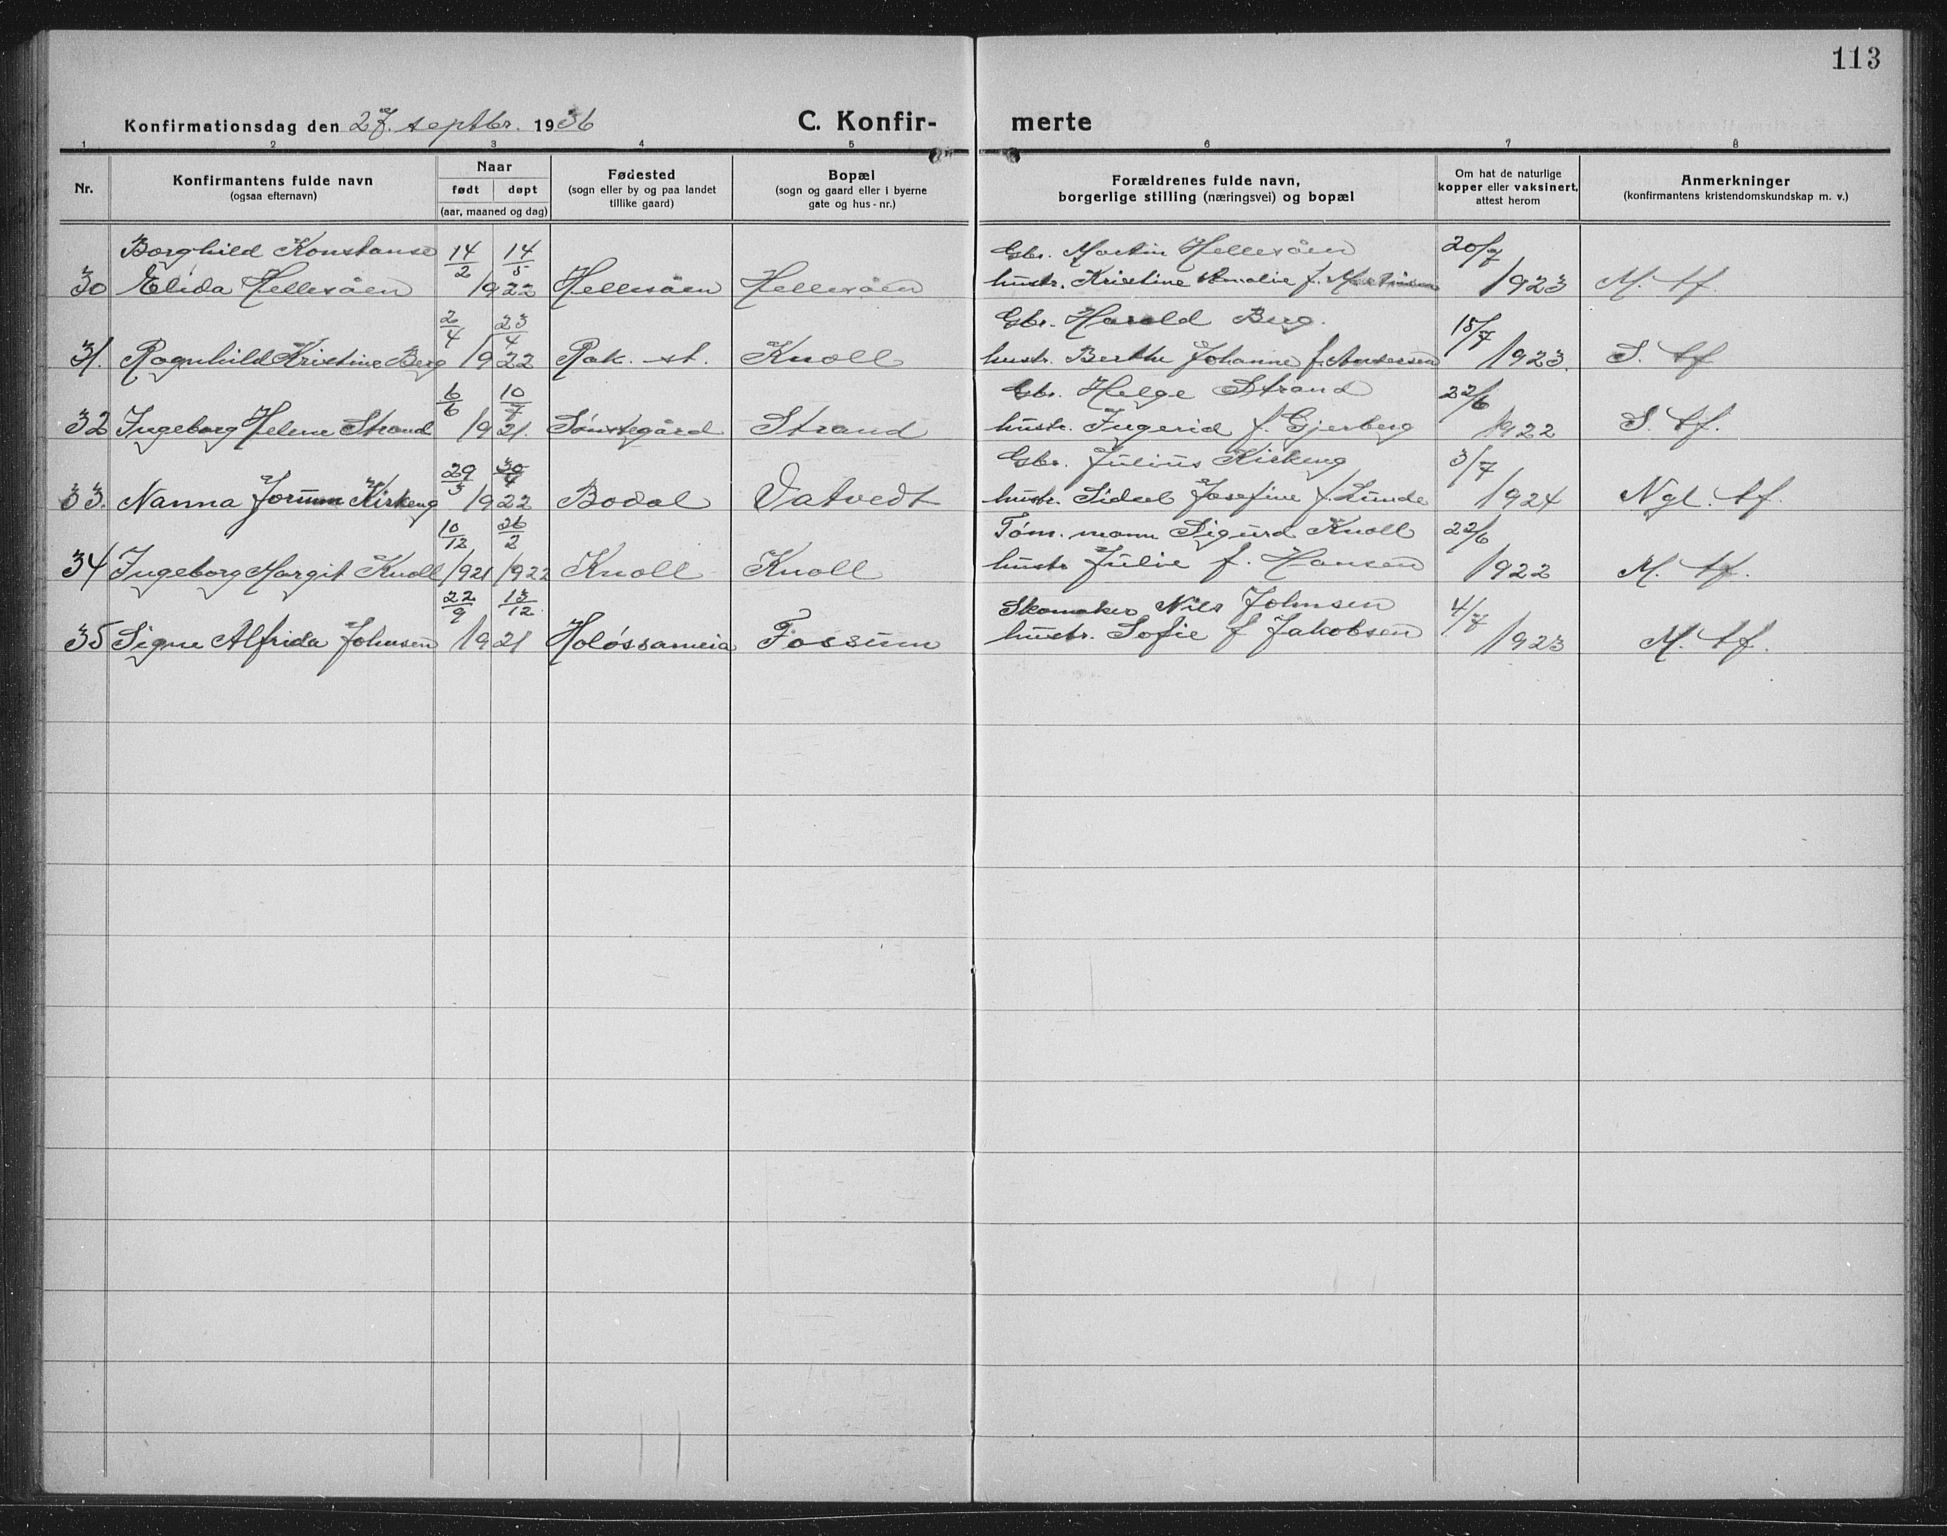 113
Konfirmationsdag den 27. septbr. 1936
C. Konfir- merte
1 2 3 4 5 6 7 8
Nr.
Konfirmantens fulde navn
(ogsaa efternavn)
Naar
født døpt
(aar, maaned og dag)
Fødested
(sogn eller by og paa landet
tillike gaard)
Bopæl
(sogn og gaard eller i byerne
gate og hus-nr.)
Forældrenes fulde navn,
borgerlige stilling (næringsvei) og bopæl
Om hat de naturlige
kopper eller vaksinert,
attest herom
Anmerkninger
(konfirmantens kristendomskundskap m. v.)
Borghild Konstanse 14/2 14/5 Gbr. Martin Hellesåen 20/7
30 Elida Hellesåen 1922 Hellesåen Hellesåen hustr. Kristine Amalie f. 1923 M. tf.
2/4 23/4 Gbr. Harald Berg. 18/7
31. Ragnhild Kristine Berg 1922 Rak. st. Knoll hustr. Berthe Johanne f. Andersen 1923. S. tf
6/6 10/7 Gbr. Helge Strand 22/6
32 Ingeborg Helene Strand 1921. Strand hustr. Ingerid f. Gjerberg 1922 S. tf.
29/3 30/4 Gbr. Julius Kirkeng 3/7
33. Nanna Jorunn Kirkeng 1922 Bodal Vatvedt hustr. Sidsel Josefine f. Lunde 1924 Ngl. tf.
10/12 26/2 Tøm. mann Sigurd Knoll 22/6
34 Ingeborg Margit Knoll 1921 1922 Knoll Knoll hustr Julie f. Hansen 1922 M. tf.
22/9 13/12. Skomaker Nils Johnsen 4/7
35 Signe Alfrida Johnsen 1921 Fossum hustr. Sofie f Jakobsen 1923 M. tf.